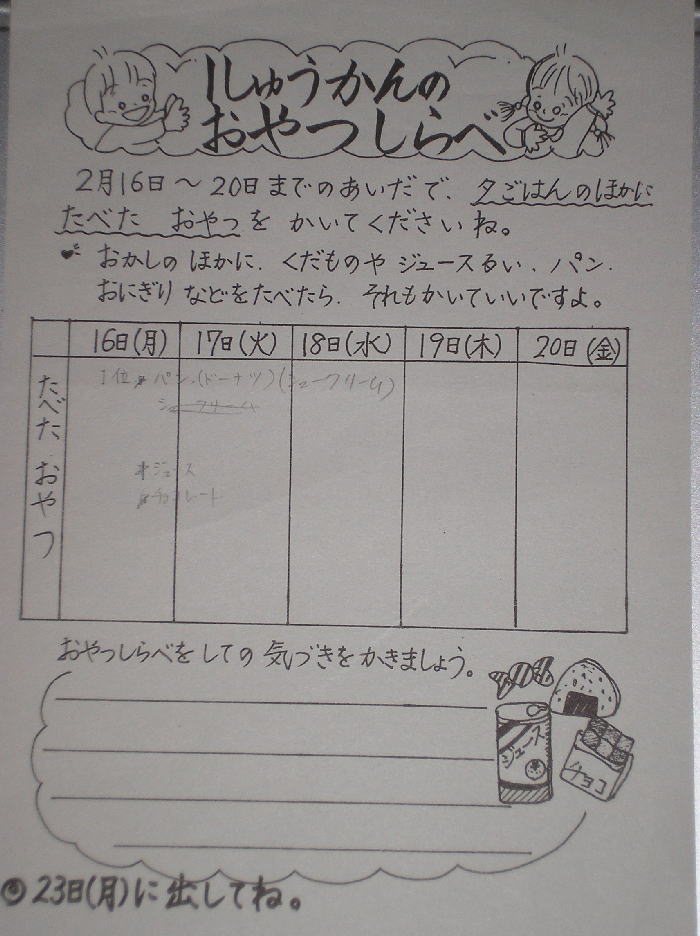 1しゅうかんの
おやつしらべ
2月16日～20日までのあいだで、夕ごはんのほかに
たべた おやつを かいてくださいね。
おかしの ほかに、くだものや ジュースるい、パン、
おにぎり などをたべたら、それもかいていいですよ。
16日(月) 17日(火) 18日(水) 19日(木) 20日(金)
たべた おやつ
1位 パン、(ドーナツ)(シュークリーム)
シュークリーム
ジュース
チョコレート
おやつしらべを しての 気づきを かきましょう。
ジュース
チョコ
23日(月)に出してね。